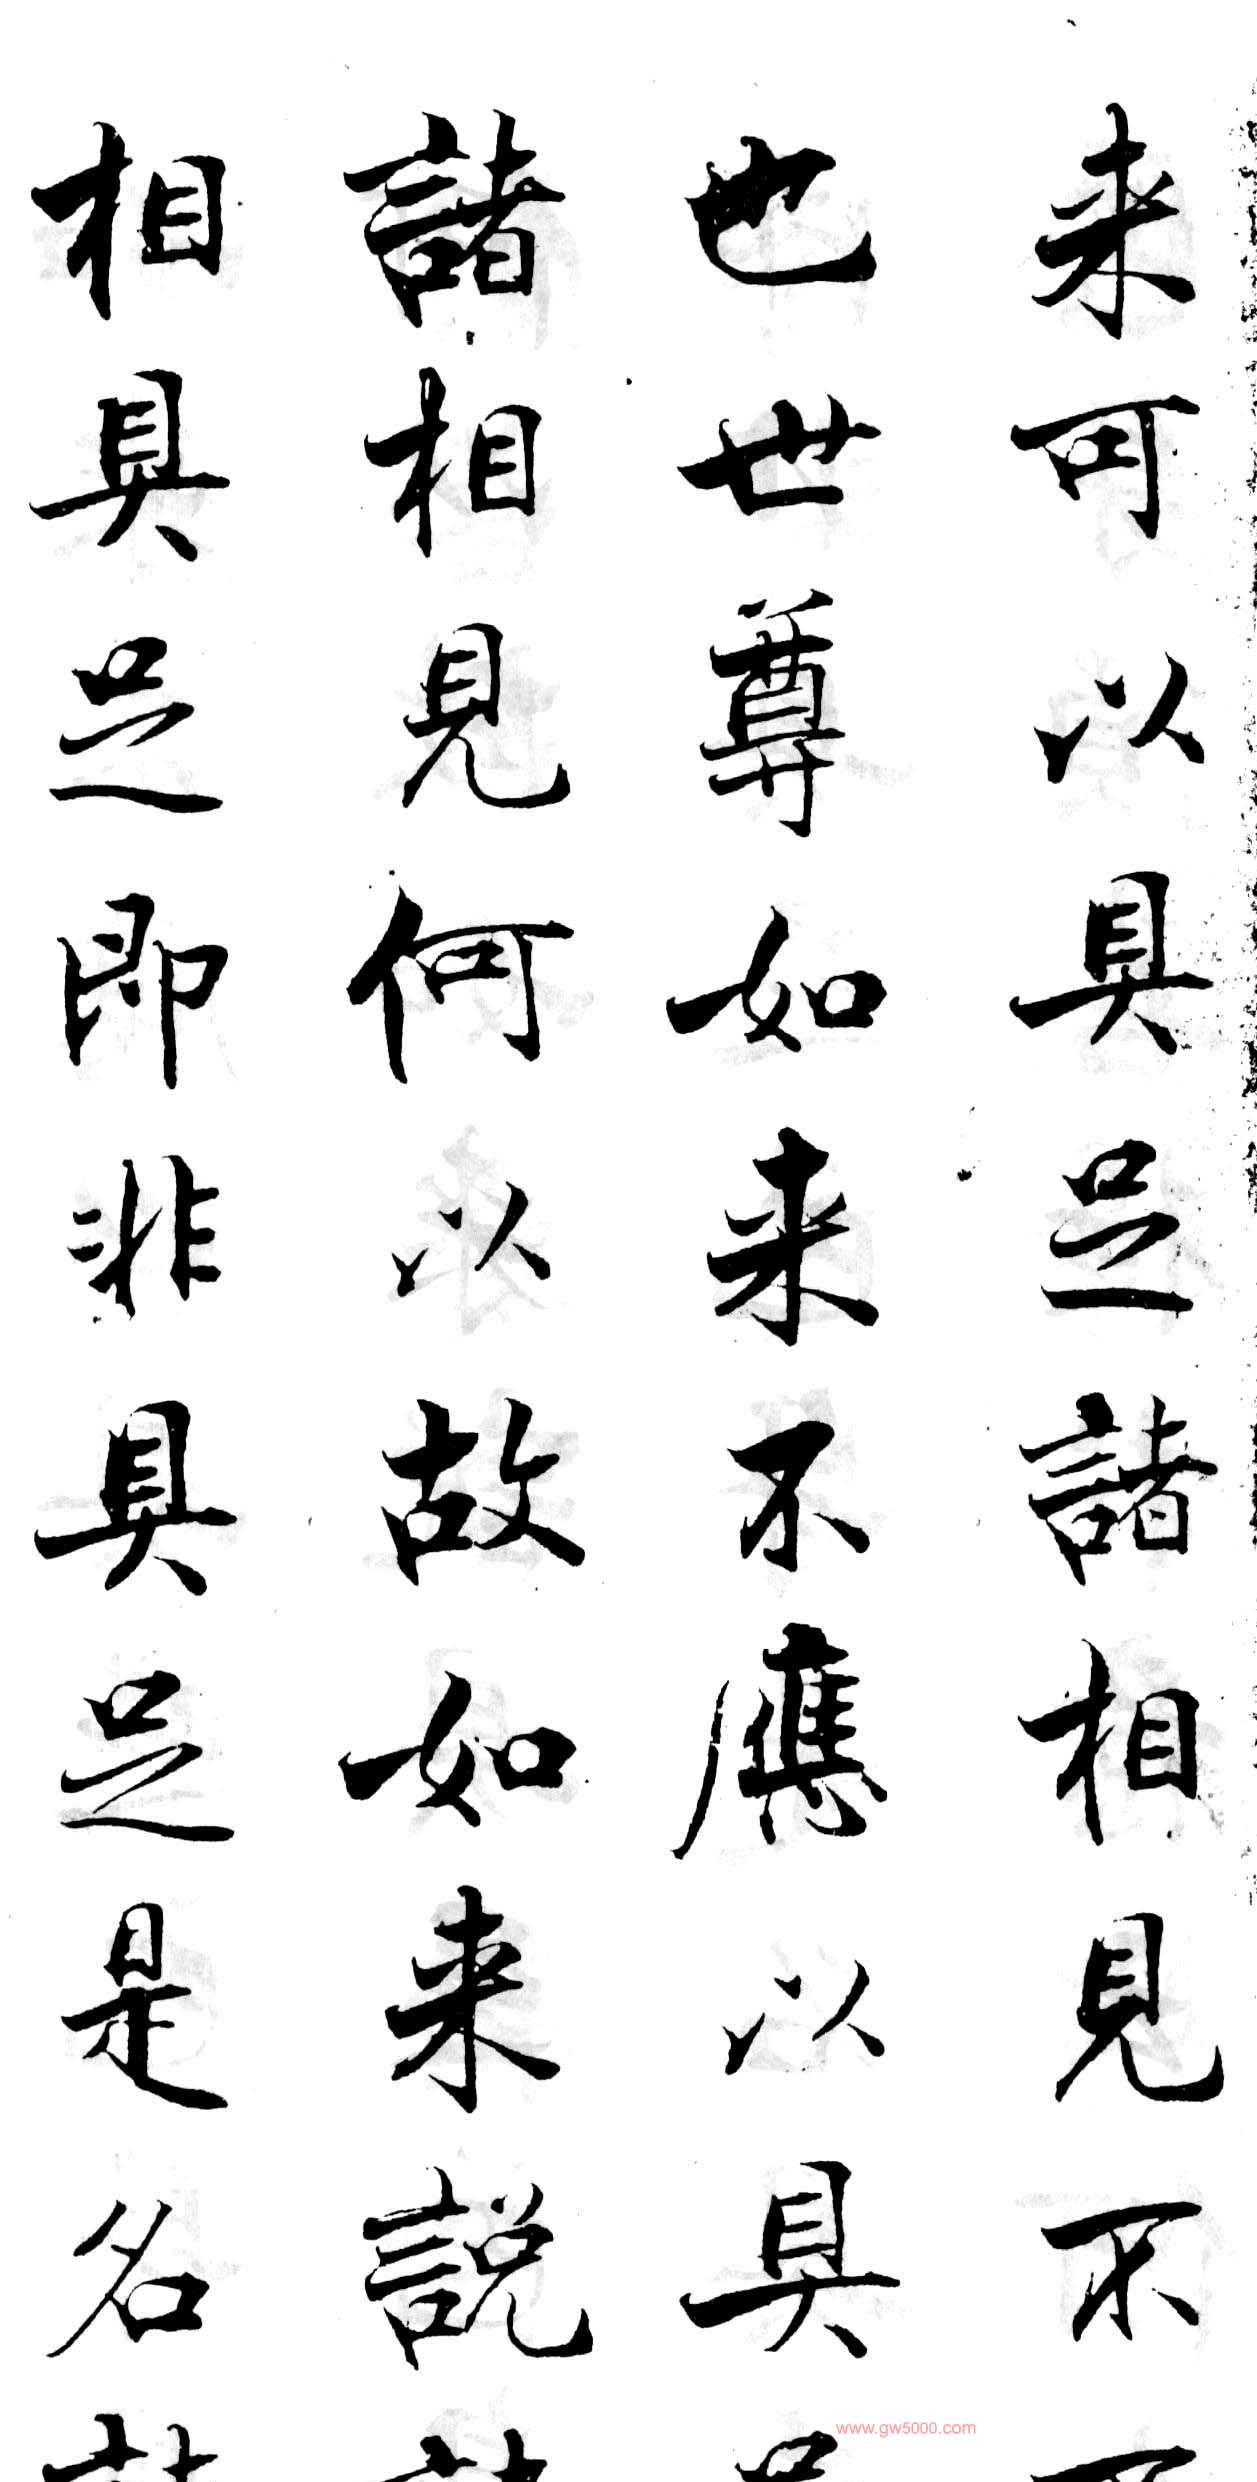 来可以具足諸相見不
也世尊如来不應以具
諸相見何以故如来説
相具足即非具足是名
www.gw5000.com